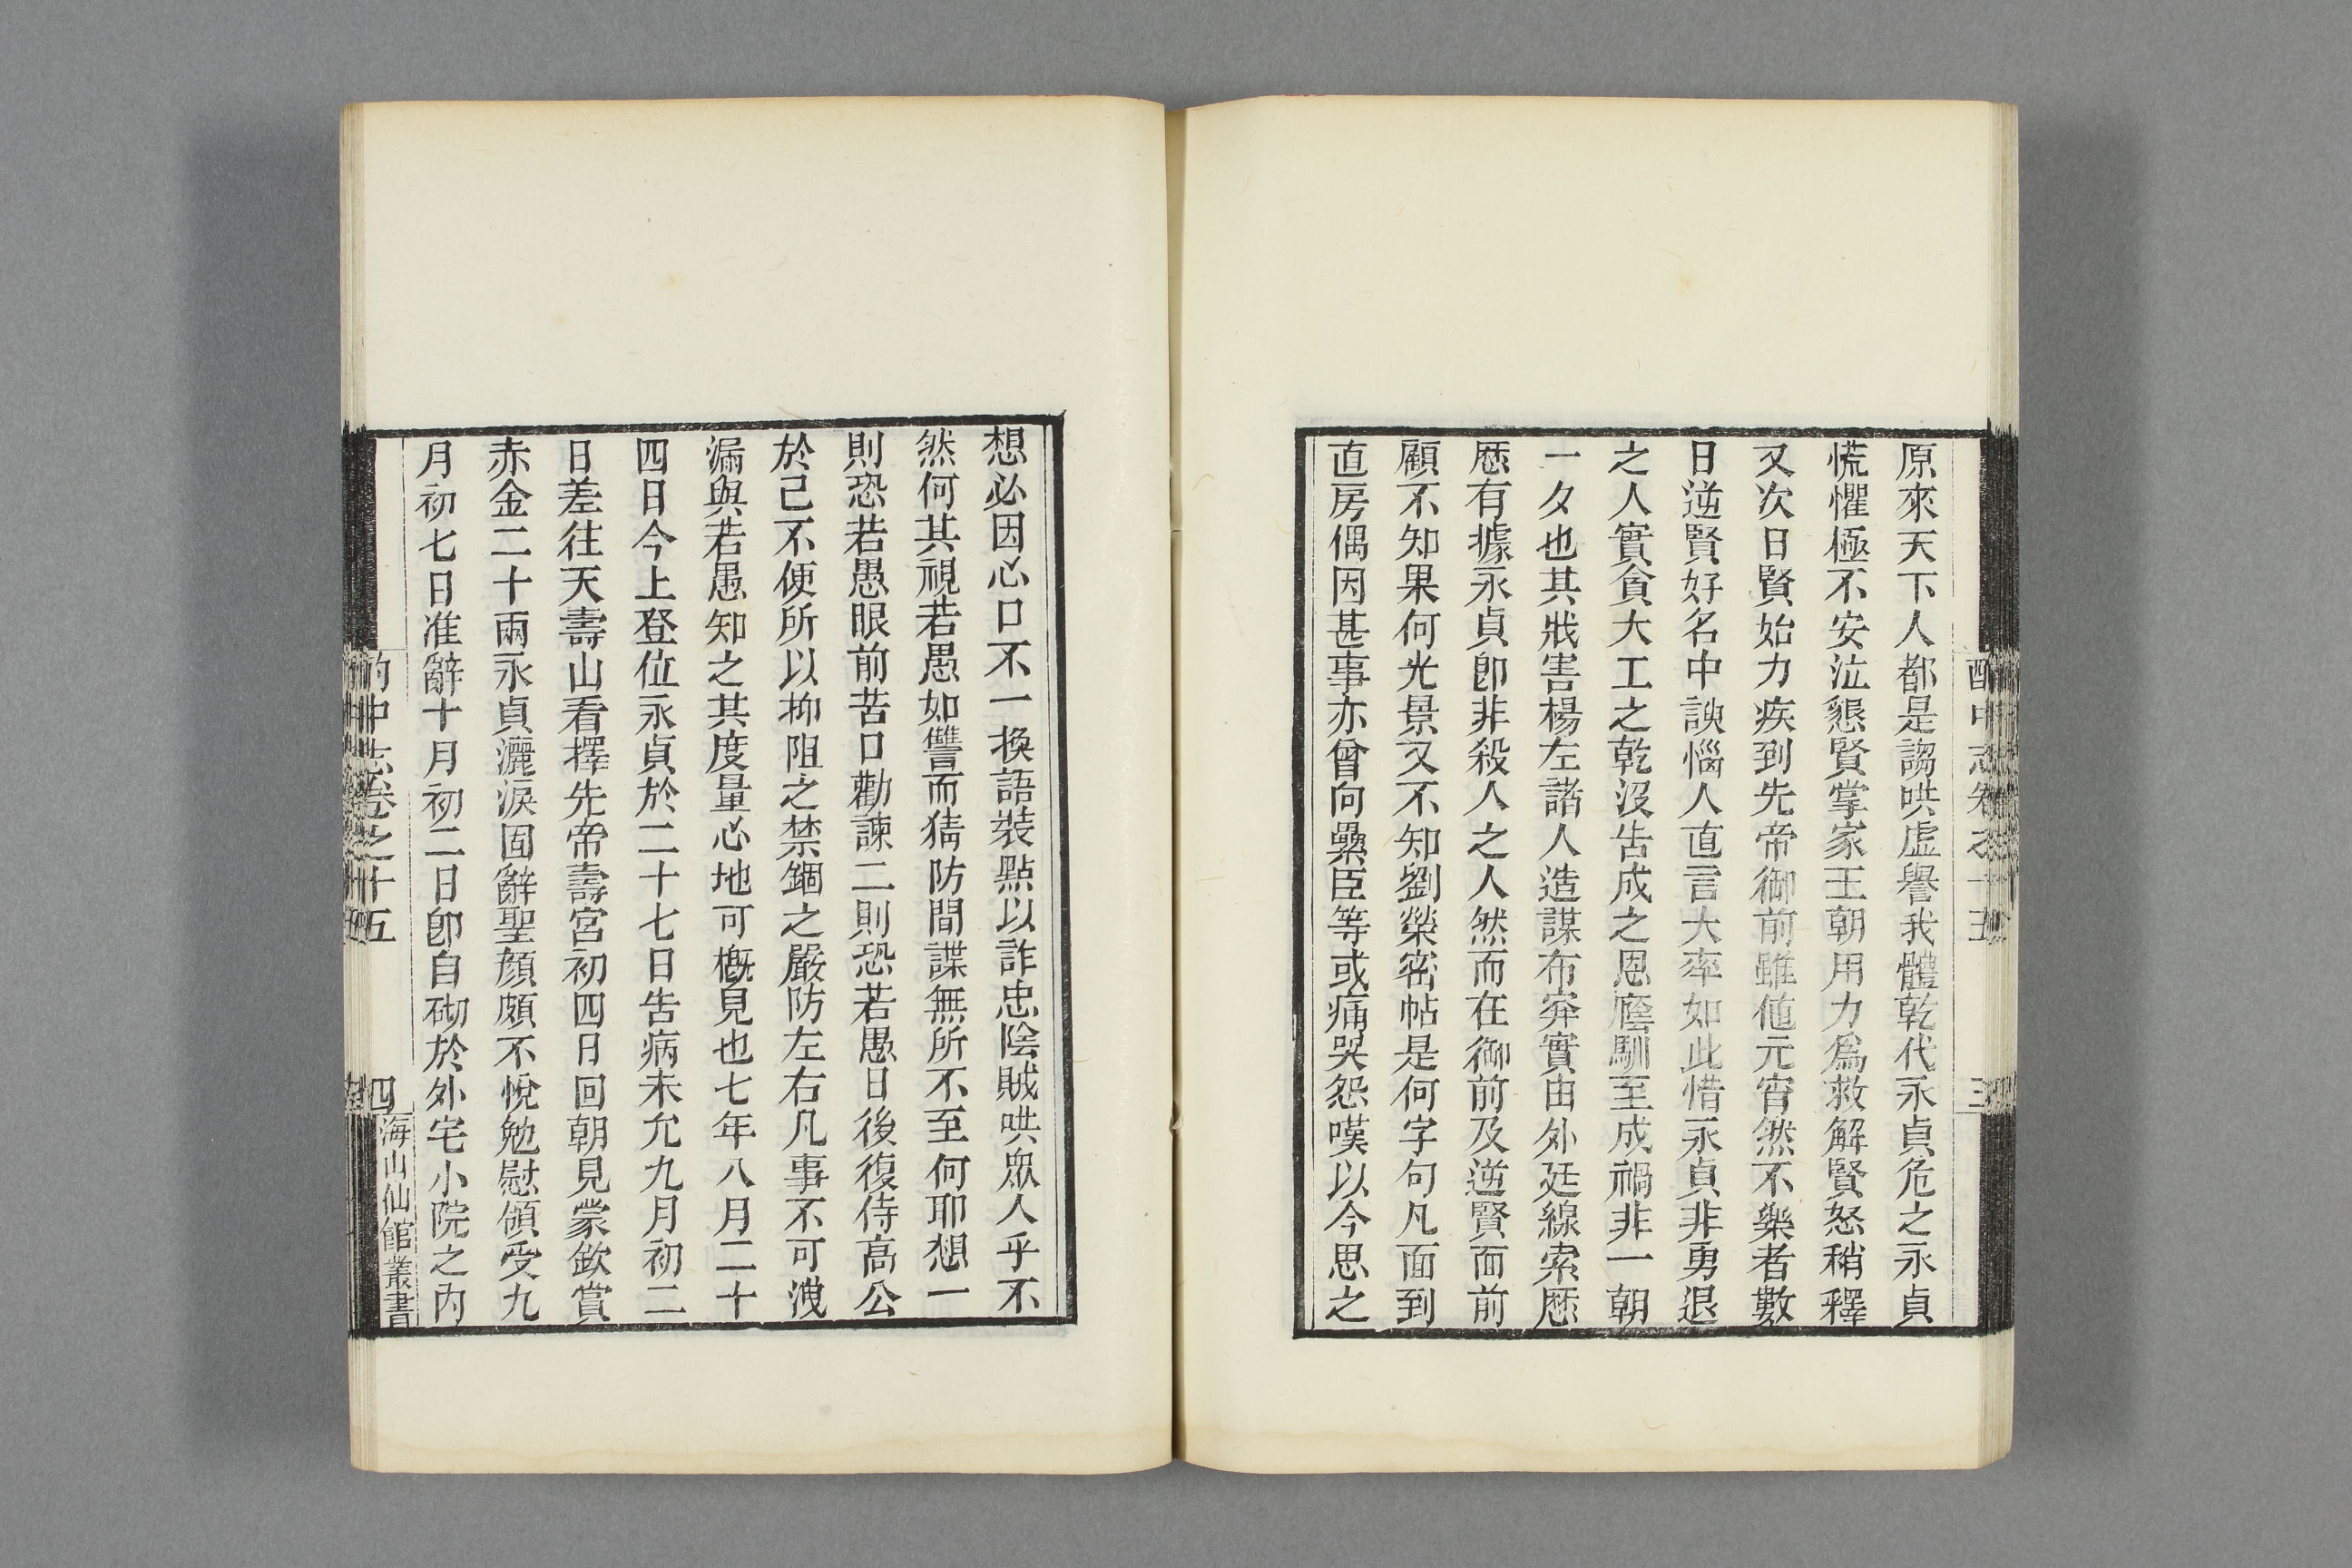 酌中志卷之十五
三
原來天下人都是謅哄虛譽我體乾代永貞危之永貞
慌懼極不安泣懇賢掌家王朝用力爲救解賢怒稍釋
又次日賢始力疾到先帝御前雖値元宵然不樂者數
日逆賢好名中諛惱人直言大率如此惜永貞非勇退
之人實貪大工之乾沒吿成之恩廕馴至成禍非一朝
一夕也其戕害楊左諸人造謀布穽實由外廷線索歷
歷有據永貞卽非殺人之人然而在御前及逆賢面前
顧不知果何光景又不知劉榮密帖是何字句凡面到
直房偶因甚事亦曾向纍臣等或痛哭怨嘆以今思之
想必因心口不一換語裝點以詐忠陰賊哄眾人乎不
然何其視若愚如讐而猜防間諜無所不至何耶想一
則恐若愚眼前苦口勸諫二則恐若愚日後復侍高公
於己不便所以抑阻之禁錮之嚴防左右凡事不可洩
漏與若愚知之其度量心地可槪見也七年八月二十
四日今上登位永貞於二十七日吿病未允九月初二
日差往天壽山看擇先帝壽宮初四日回朝見蒙欽賞
赤金二十兩永貞灑淚固辭聖顏頗不悅勉慰領受九
月初七日准辭十月初二日卽自砌於外宅小院之內
酌中志卷之十五
四
海山仙館叢書